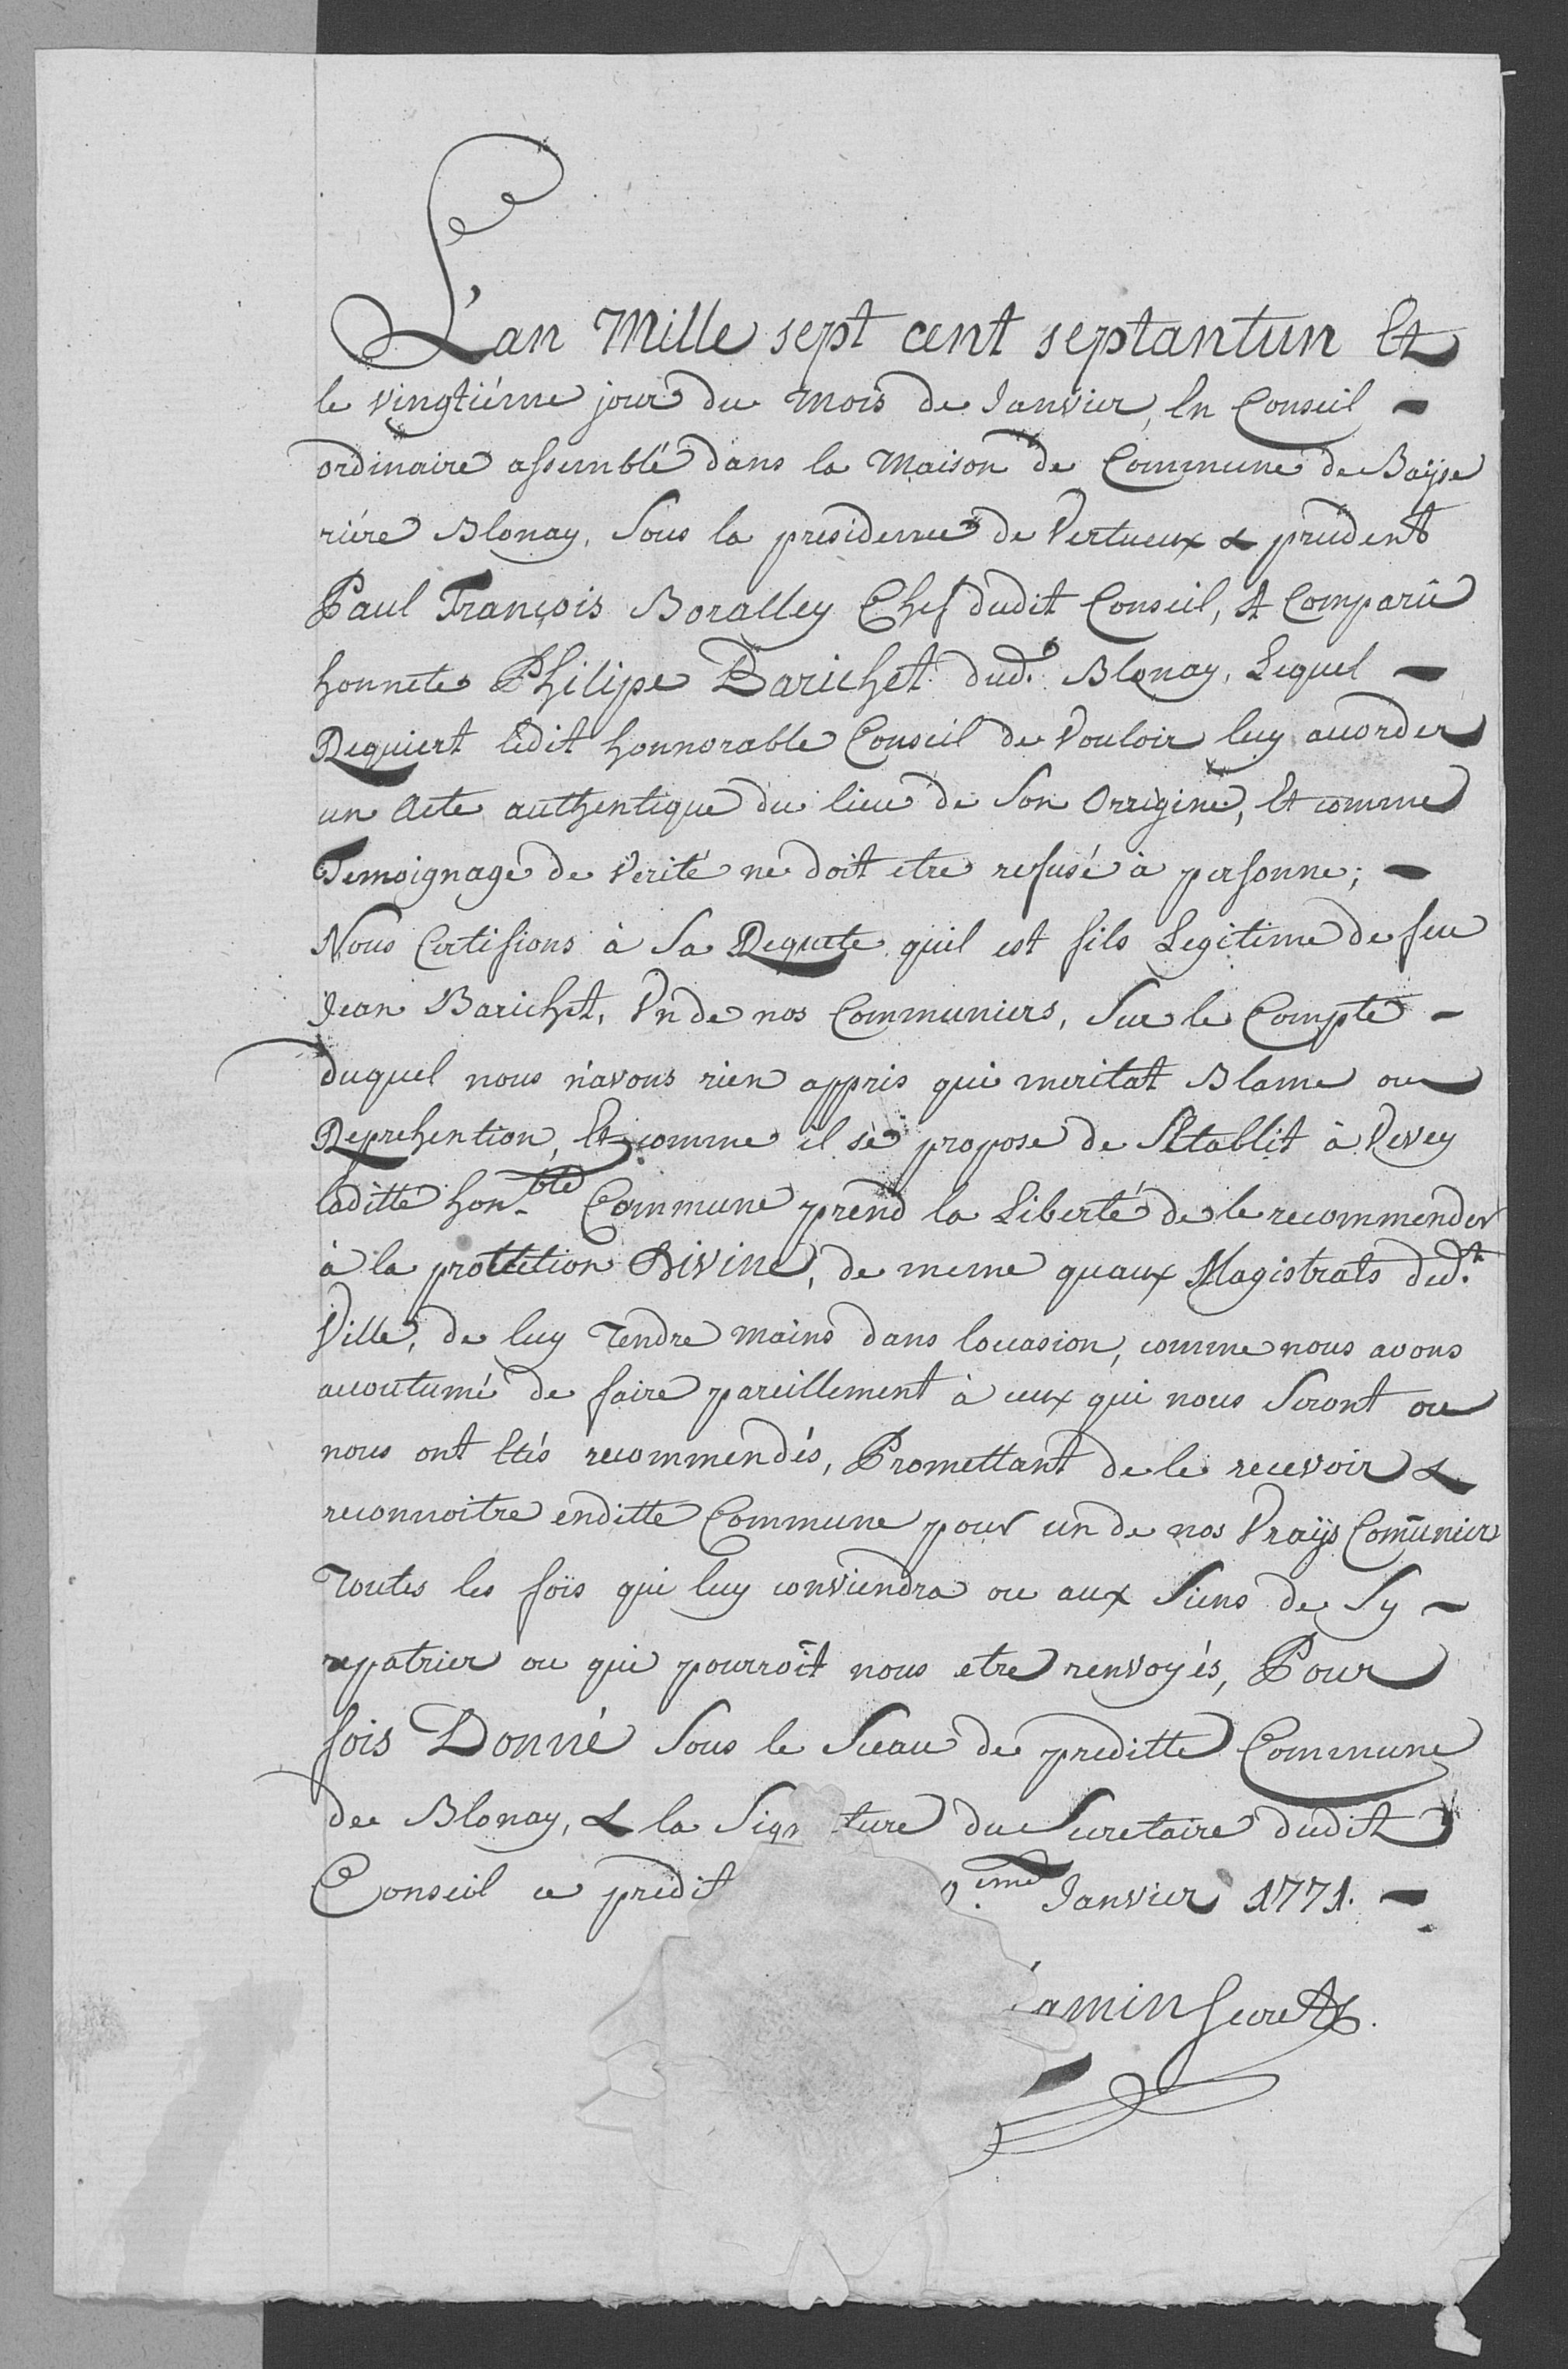 L'an Mille sept cent septantun Et
le vingtiéme jour du mois de Janvier, En Conseil -
ordinaire assemblé dans la Maison de Commune de Baÿse
riére Blonay, Sous la presidence de Vertueux & prudent
Paul François Boralley Chef dudit Conseil, A Comparû
honnete Philipe Barichet dud.t Blonay, Lequel -
Requiert ledit honnorable Conseil de Vouloir luy accorder
un Acte authentique du lieu de Son Orrigine, Et comme
Temoignage de Verité ne doit etre refusé à personne; -
Nous Certifions à Sa Requete quil est fils Legitime de feu
Jean Barichet, Un de nos Communiers, Sur le Compte -
duquel nous n'avons rien appris qui meritat Blame ou
Reprehention, Et comme il se propose de S'Etablit à Vevey
laditte hon.ble Commune prend la Liberté de le recommender
à la protection Divine, de meme quaux Magistrats dud.t
Ville, de luy Tendre mains dans loccasion, comme nous avons
accoutumé de faire pareillement à ceux qui nous Seront ou
nous ont Etés recommendés, Promettant de le recevoir &
reconnoitre enditte Commune pour un de nos Vraÿs Com̄unier
Toutes les fois qui luy conviendra ou aux Siens de Sy -
repatrier ou qui pourroit nous etre renvoyés, Pour
fois Donné Sous le Sceau de preditte Commune
de Blonay, & la Sign ture du Secretaire dudit
Conseil ce predit 0.eme Janvier 1771. -
amin Secret.